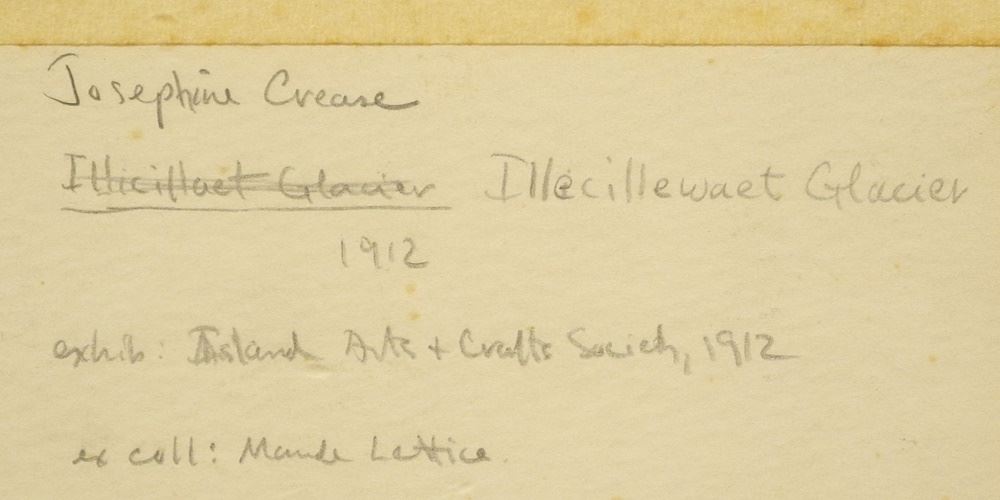 Josephine Crease
Illicillaet Glacier Illecillewaet Glacier
1912
exhib: Island Arts + Crafts Society, 1912
ex coll: Maude Lettice